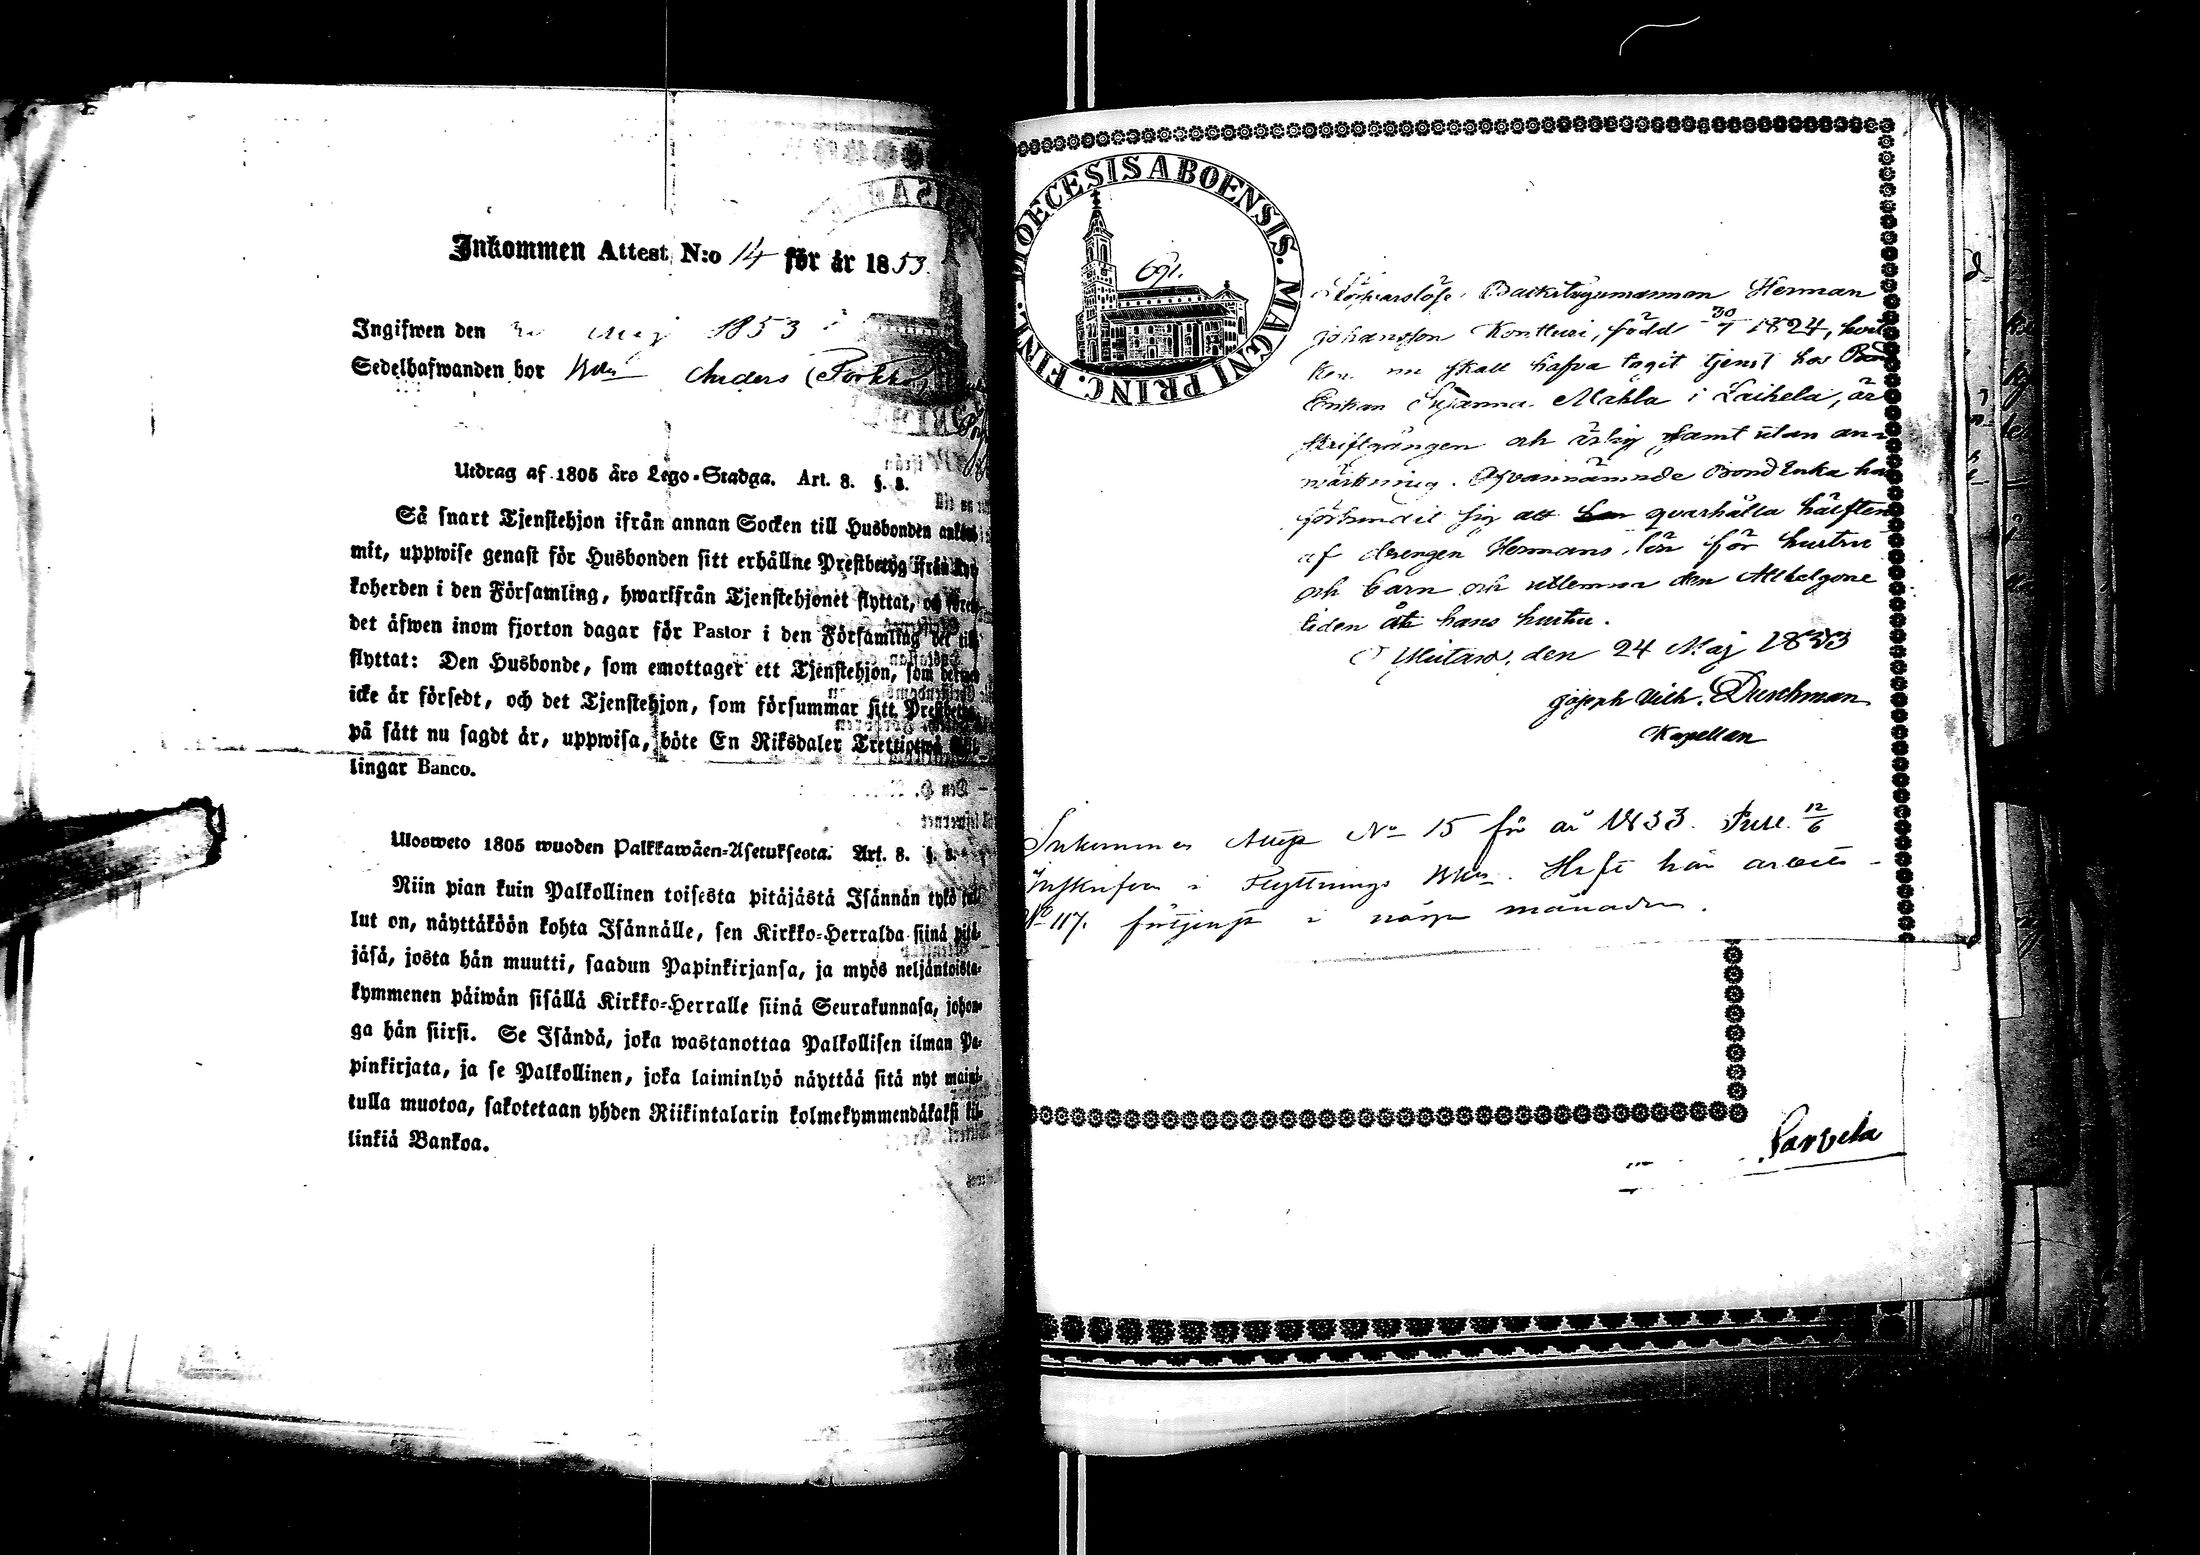 Inkommen Attest N:o 14 för år 1853.
Ingifwen den Maj 1853
Sedelhafwanden hor Anders
Utdrag af 1805 års Lego-Stadga. Art. 8. §. 8.
Så snart Tjenstehjon ifrån annan Socken till Husbonden ankom-
mit, uppwise genast för Husbonden sitt erhållne Prestbetyg ifrån Kyr-
koherden i den Församling, hwarifrån Tjenstehjonet flyttat, och
det äfwen inom fjorton dagar för Pastor i den Församling det till-
flyttat: Den Husbonde, som emottager ett Tjenstehjon, som
icke är försedt, och det Tjenstehjon, som försummar sitt Prestbetyg
på sätt nu sagdt är, uppwisa, böte En Riksdaler Trettiotwå Skil-
lingar Banco.
Ulosweto 1805 wuoden Palkkawäen-Asetuksesta. Art. 8. §. 8.
Niin pian kuin Palkollinen toisesta pitäjästä Isännän tykö tul-
lut on, näyttäköön kohta Isännälle, sen Kirkko-Herralda siinä pitä-
jäsä, josta hän muutti, saadun Papinkirjansa, ja myös neljäntoista-
kymmenen päiwän sisällä Kirkko-Herralle siinä Seurakunnasa, johon-
ga hän siirsi. Se Isändä, joka wastanottaa Palkollisen ilman Pa-
pinkirjata, ja se Palkollinen, joka laiminlyö näyttää sitä nyt maini-
tulla muotoa, sakotetaan yhden Riikintalarin kolmekymmendäkaksi kil-
linkiä Bankoa.
FINL. DIOECESIS ABOENSIS. MAGNI PRINC.
691.
Backstugumannen Herman
Johansson Kontturi, född 30/7 1824, hvil
ken nu skall hafva tagit tjenst hos Bond
Enkan Susanna Mäkla i Laihela, är
skriftgången och ärlig samt utan an-
märkning. Ofvannämnde Bond Enka har
förbundit sig att qvarhålla hälften
af drengen Hermans lön för hustru
och barn och utlemna den Allhelgone
tiden åt hans hustru.
den 24 Maj 1853
Joseph Wilh. Durchman
Kapellan
Inkommen Attest No 15 för år 1853. 12/6
Inskrifven i Flyttnings Haft här arbets-
No 117. förtjenst i några månader.
Parvela